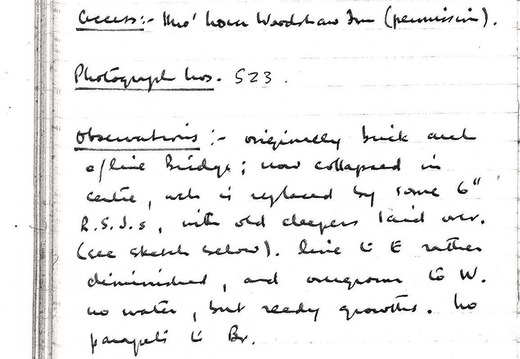 Access:- thro' Lower Woodshaw Fm (permission).
Photograph nos. S23.
Observations:- originally brick arch
o/line Bridge; now collapsed in
centre, wh is replaced by some 6"
R.S.J.s, with old sleepers laid over.
(see sketch below). line to E rather
diminished, and overgrown to W.
no water, but reedy growths. no
parapets to Br.